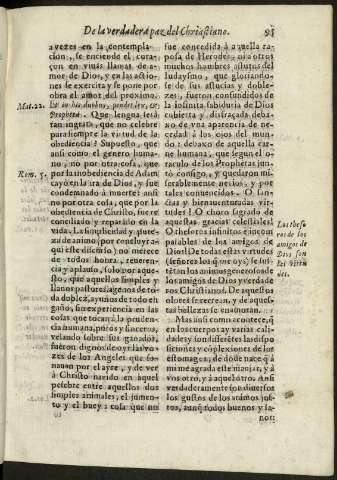 De la verdadera paz del Christiano.
95
a vezes en la contemplacion,
se enciende el coraçon
en viuas llamas de amor
de Dios, y en las actiones
se exercita y se pone por
obra el amor del proximo.
Mat. 22.
Prophetæ. Que lengua será
tan ingrata, que no celebre
para siempre la virtud de la
obediencia? Supuesto, que
ansi como el genero humano,
no por otra cosa, que
Rom. 5.
por la inobediencia de Adam
cayò en la ira de Dios, y fue
condenado à muerte: ansi
no por otra cosa, que por la
obediencia de Christo, fue reconciliado
en la gracia y la
vida. La simplicidad y pureza
de animo (por concluyr aqui
este discurso) no merece
de todos honra, reuerencia
y aplauso, solo por aquesto,
que aquellos simples y
llanos pastores, agenos de toda
doblez, ayunos de todo engaño,
sin experiencia en las
cosas que tocan à la prudencia
humana, puros y sinceros,
velando sobre sus ganados,
fueron dignos de oyr las vozes
de los Angeles que sonauan
por el ayre, y de ver
à Christo nacido en aquel
pesebre entre aquellos dos
simples animales, el jumento
y el buey: cosa que no
fue concedida à aquella raposa
de Herodes, ni à otros
muchos hombres astutos del
Iudaysmo, que gloriandose
de sus astucias y doblezes,
fueron confundidos de
la infinita sabiduria de Dios
cubierta y disfraçada debaxo
de vna aparencia de necedad
à los ojos del mundo:
debaxo de aquella carne
humana, que segun el oraculo
de los Prophetas juntó
consigo, y quedaron miserablemente
necios, y por
tales conuencidos. O sanctas
y bienauenturadas virtudes!
O choro sagrado de
aquestas gracias celestiales!
O thesoros infinitos è incompables
de los amigos de
Dios! De todas estas virtudes
(señores los que oys) se sustentan
los animos generosos de
los amigos de Dios y verdaderos
Christianos. De aquestos
olores se recrean, y de aquestas
bellezas se sustentan.
Los thesoros
de los
amigos de
Dios son
las virtudes.
Mas ansi como acontece, q̃
en los cuerpos ay varias calidades
y son differẽtes las disposiciones
y cõplexiones de los
estomagos, de donde nace q̃ à
mi me agrada este manjar, y à
vos otro, y à aquel otro. Ansi
verdaderamente son diuersos
los gustos de los vnos y justos,
aunq̃ todos buenos y sanos: